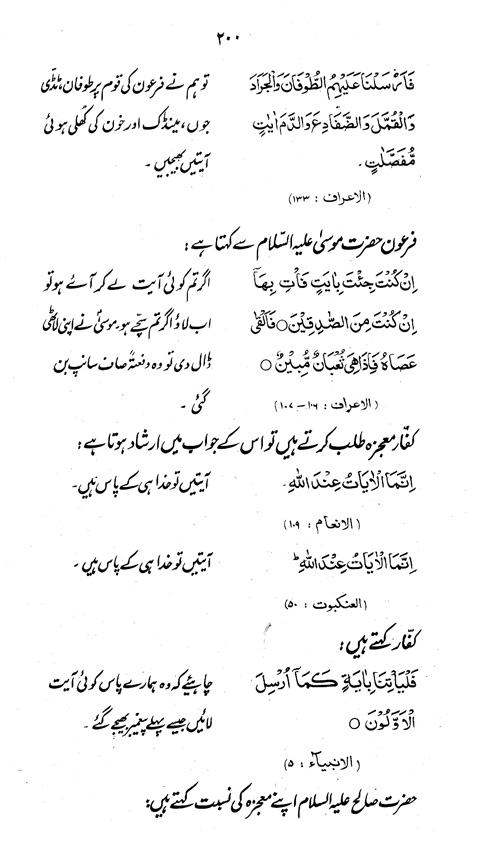 ۲۰۰
فَاَرْسَلْنَا عَلَيْهِمُ الطُّوْفَانَ وَالْجَرَادَ تو ہم نے فرعون کی قوم پر طوفان، ٹڈی
وَالْقُمَّلَ وَالضَّفَادِعَ وَالدَّمَ اٰيٰتٍ جوں، مینڈک اور خون کی کھلی ہوئی
مُّفَصَّلٰتٍ۔ آیتیں بھیجیں۔
(الاعراف : ۱۳۳)
فرعون حضرت موسیٰ علیہ السّلام سے کہتا ہے:
اِنْ كُنْتَ جِئْتَ بِاٰيَةٍ فَاْتِ بِهَآ اگر تم کوئی آیت لے کر آئے ہو تو
اِنْ كُنْتَ مِنَ الصّٰدِقِيْنَ○ فَاَلْقٰى اب لاؤ اگر تم سچے ہو، موسیٰ نے اپنی لاٹھی
عَصَاهُ فَاِذَا هِيَ ثُعْبَانٌ مُّبِيْنٌ○ ڈال دی تو وہ دفعتہً صاف سانپ بن
(الاعراف : ۱۰۶-۱۰۷) گئی۔
کفّار معجزہ طلب کرتے ہیں تو اس کے جواب میں ارشاد ہوتا ہے:
اِنَّمَا الْاٰيَاتُ عِنْدَ اللّٰهِ۔ آیتیں تو خدا ہی کے پاس ہیں۔
(الانعام : ۱۰۹)
اِنَّمَا الْاٰيَاتُ عِنْدَ اللّٰهِ ؕ آیتیں تو خدا ہی کے پاس ہیں۔
(العنکبوت : ۵۰)
کفّار کہتے ہیں:
فَلْيَاْتِنَا بِاٰيَةٍ كَمَآ اُرْسِلَ چاہئیے کہ وہ ہمارے پاس کوئی آیت
الْاَوَّلُوْنَ○ لائیں جیسے پہلے پیغمبر بھیجے گئے۔
(الانبیآء : ۵)
حضرت صالح علیہ السلام اپنے معجزہ کی نسبت کہتے ہیں: